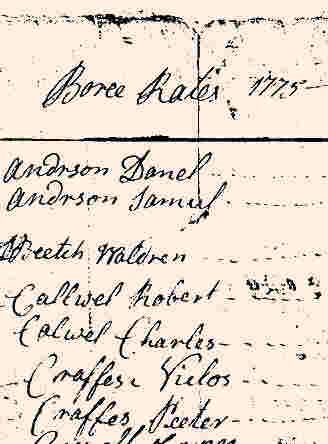 Boree Rates 1775
Andrson Danel
Andrson Samul
Beetch Waldren
Callwel Robert
Calwel Charles
Craffes Viclos
Craffes Peeter